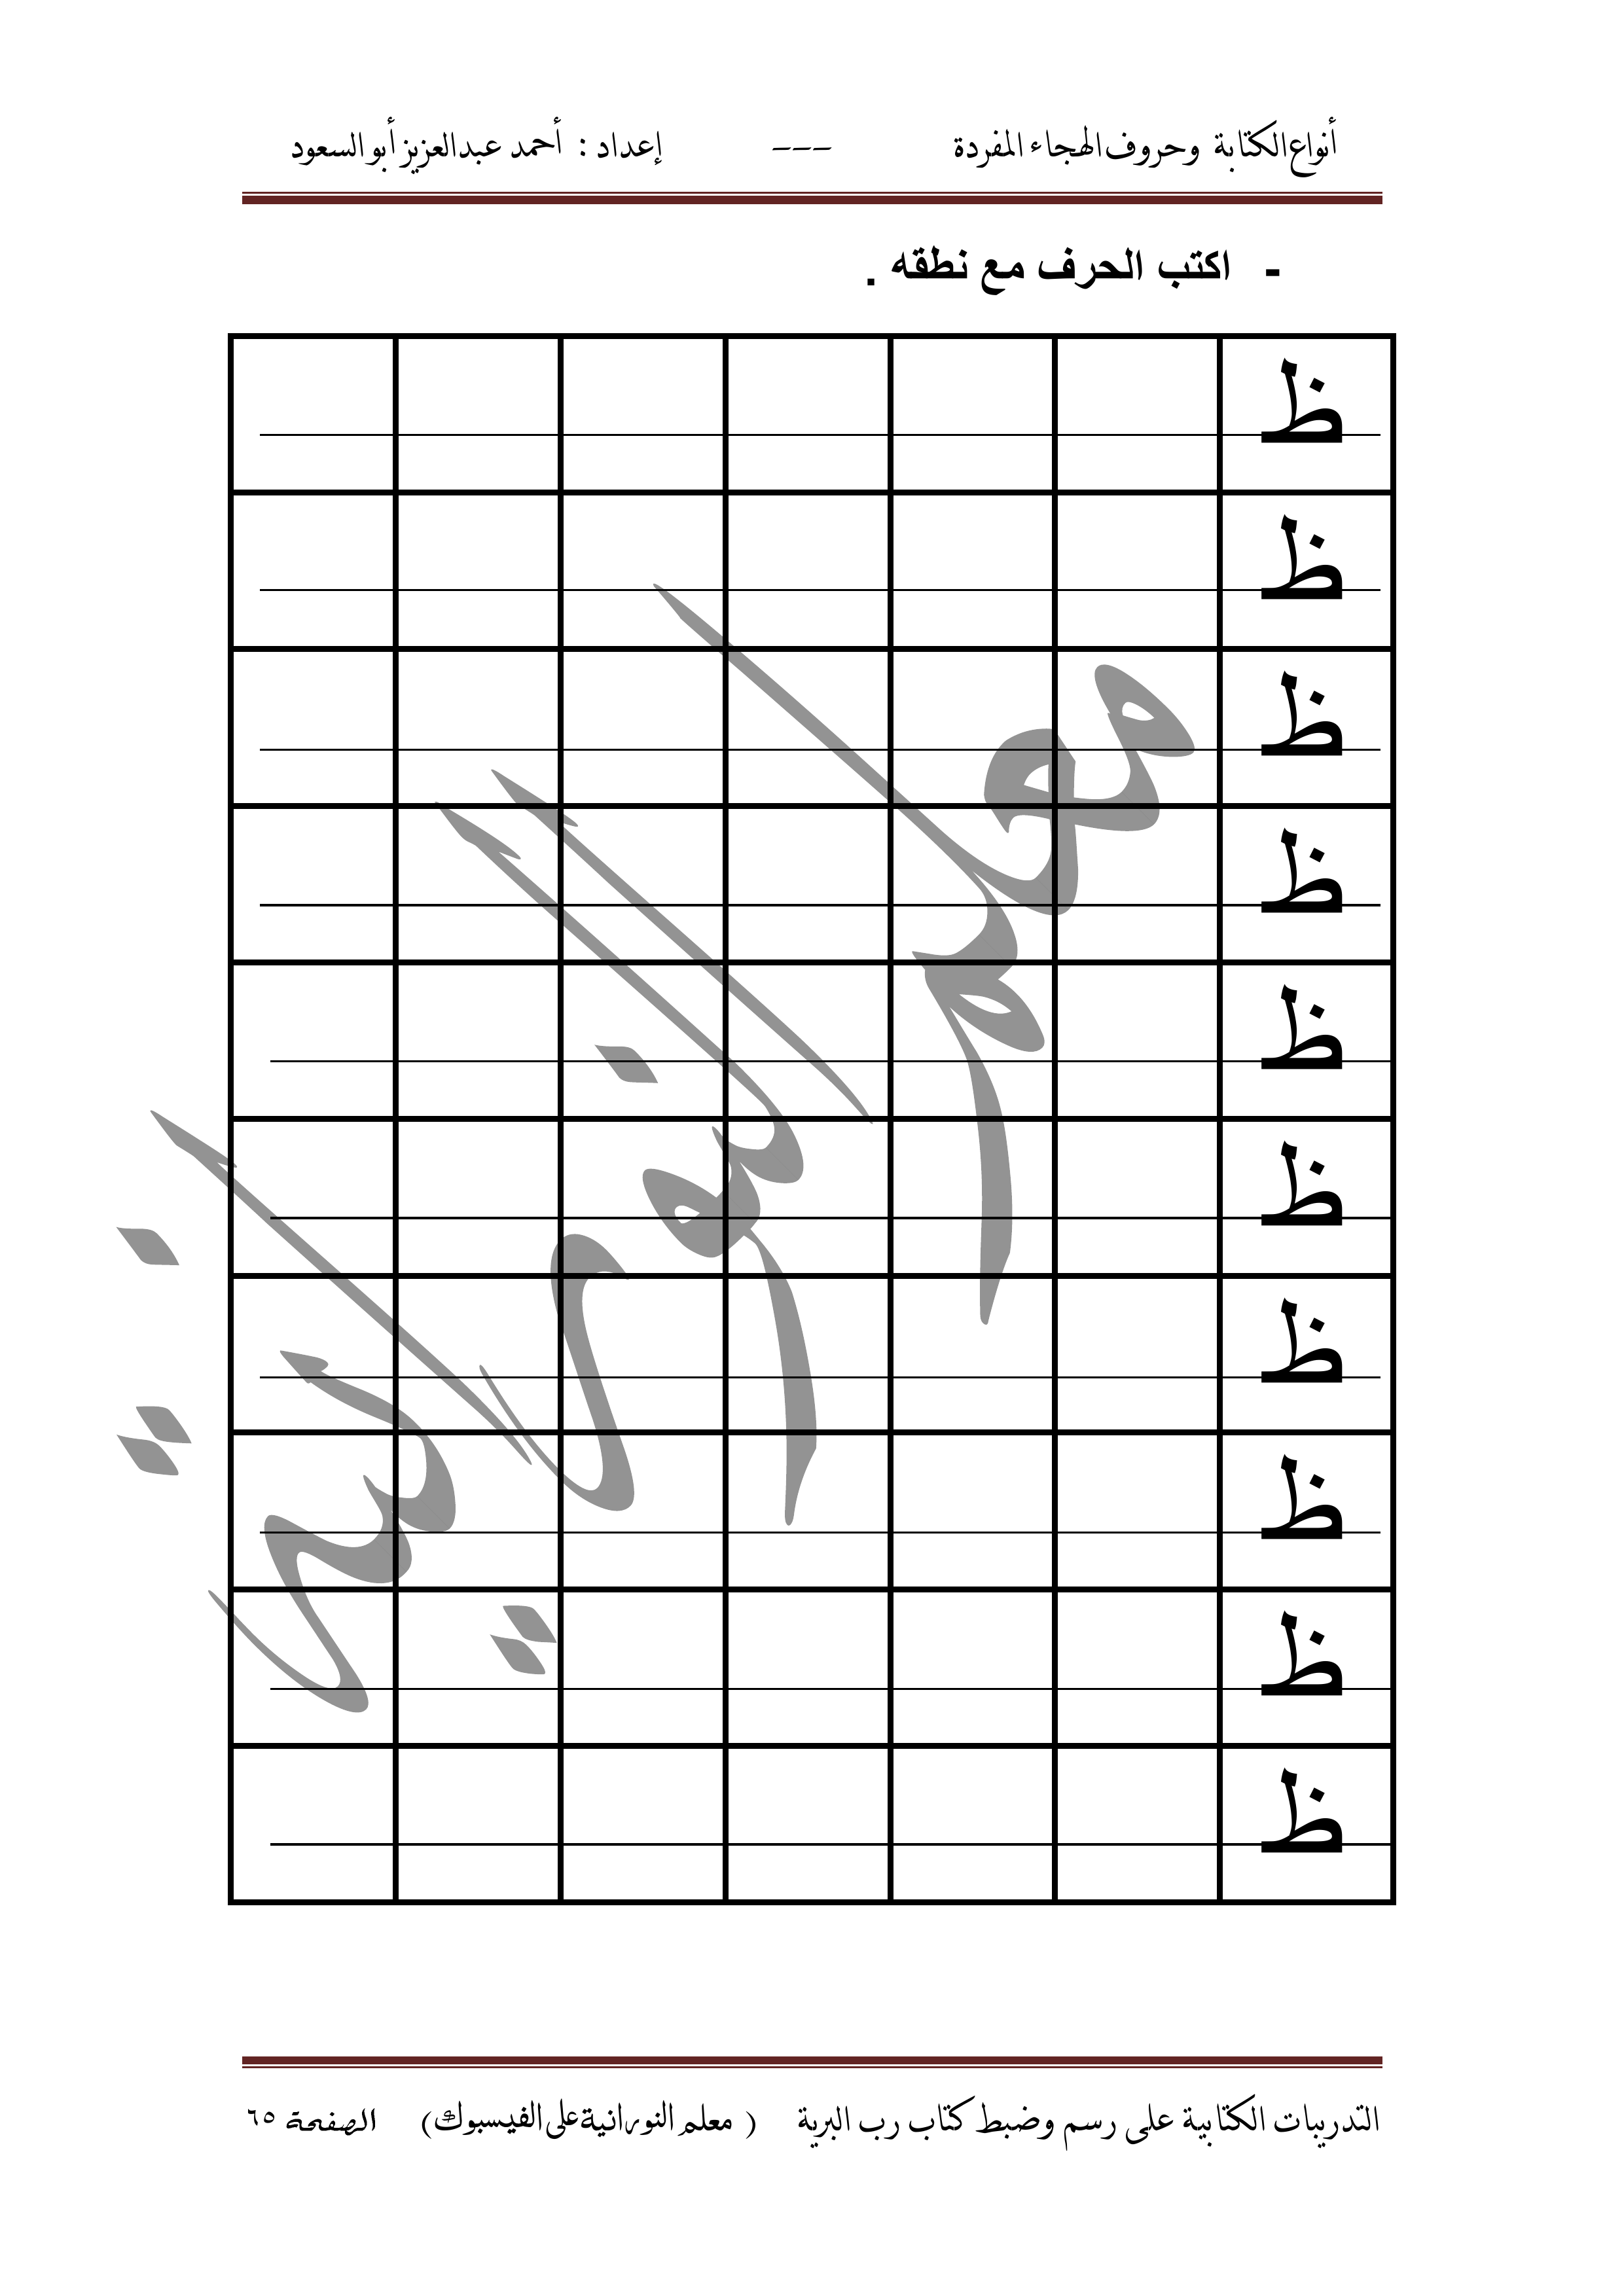 أنواع الكتابة وحروف الهجاء المفردة --- إعداد : أحمد عبدالعزيز أبو السعود
- اكتب الحرف مع نطقه .
ظ
ظ
ظ
ظ
ظ
ظ
ظ
ظ
ظ
ظ
معلم النورانية
التدريبات الكتابية على رسم وضبط كتاب رب البرية ( معلم النورانية على الفيسبوك) الصفحة ٦٥